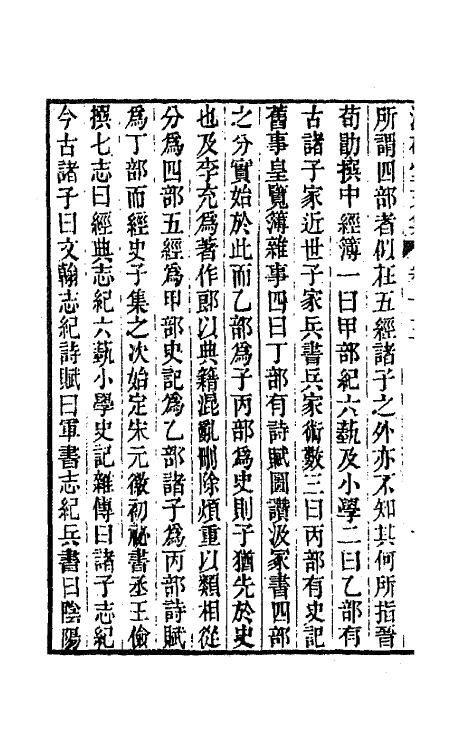 所謂四部者似在五經諸子之外亦不知其何所指晉
荀勖撰中經簿一曰甲部紀六藝及小學二曰乙部有
古諸子家近世子家兵書兵家術數三曰丙部有史記
舊事皇覽簿雜事四曰丁部有詩賦圖讚汲冢書四部
之分實始於此而乙部為子丙部為史則子猶先於史
也及李充為著作郎以典籍混亂刪除煩重以類相從
分為四部五經為甲部史記為乙部諸子為丙部詩賦
為丁部而經史子集之次始定宋元徽初祕書丞王儉
撰七志曰經典志紀六藝小學史記雜傳曰諸子志紀
今古諸子曰文翰志紀詩賦曰軍書志紀兵書曰陰陽